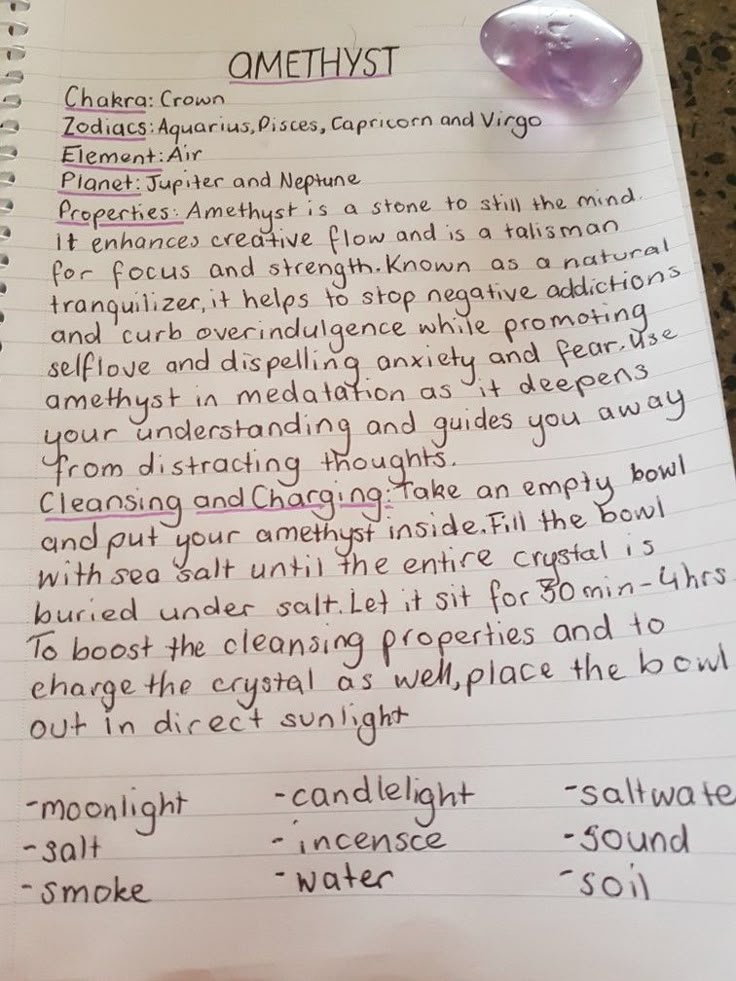 AMETHYST
Chakra: Crown
Zodiacs: Aquarius, Pisces, Capricorn and Virgo
Element: Air
Planet: Jupiter and Neptune
Properties: Amethyst is a stone to still the mind.
it enhances creative flow and is a talisman
for focus and strength. Known as a natural
tranquilizer, it helps to stop negative addictions
and curb overindulgence while promoting
selflove and dispelling anxiety and fear. Use
amethyst in medatation as it deepens
your understanding and guides you away
from distracting thoughts.
Cleansing and Charging: Take an empty bowl
and put your amethyst inside. Fill the bowl
with sea salt until the entire crystal is
buried under salt. Let it sit for 30 min - 4 hrs
To boost the cleansing properties and to
charge the crystal as well, place the bowl
out in direct sunlight
-moonlight -candlelight -saltwate
-salt -incensce -sound
-smoke -water -soil